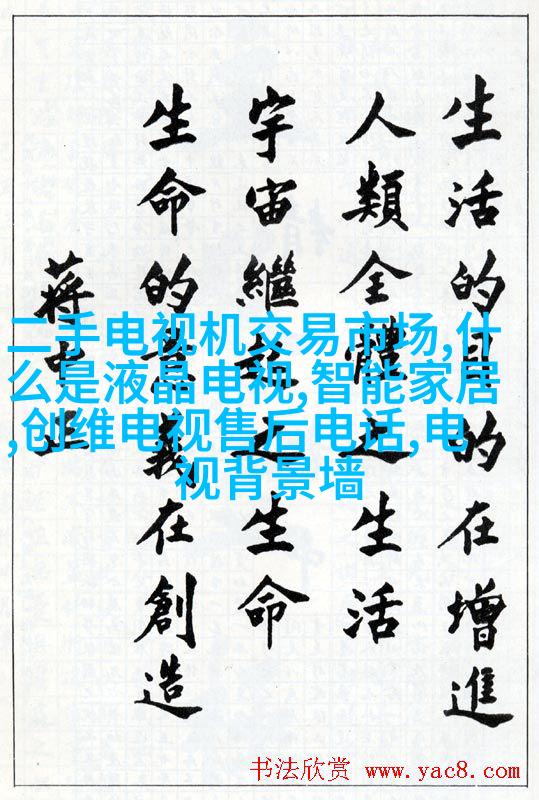 生活的目的在增進
人類全體之生活
宇宙繼起之生命
生命的意義在創造
蔣中正
二手电视机交易市场,什
么是液晶电视,智能家居
,创维电视售后电话,电
视背景墙
书法欣赏 www.yac8.com